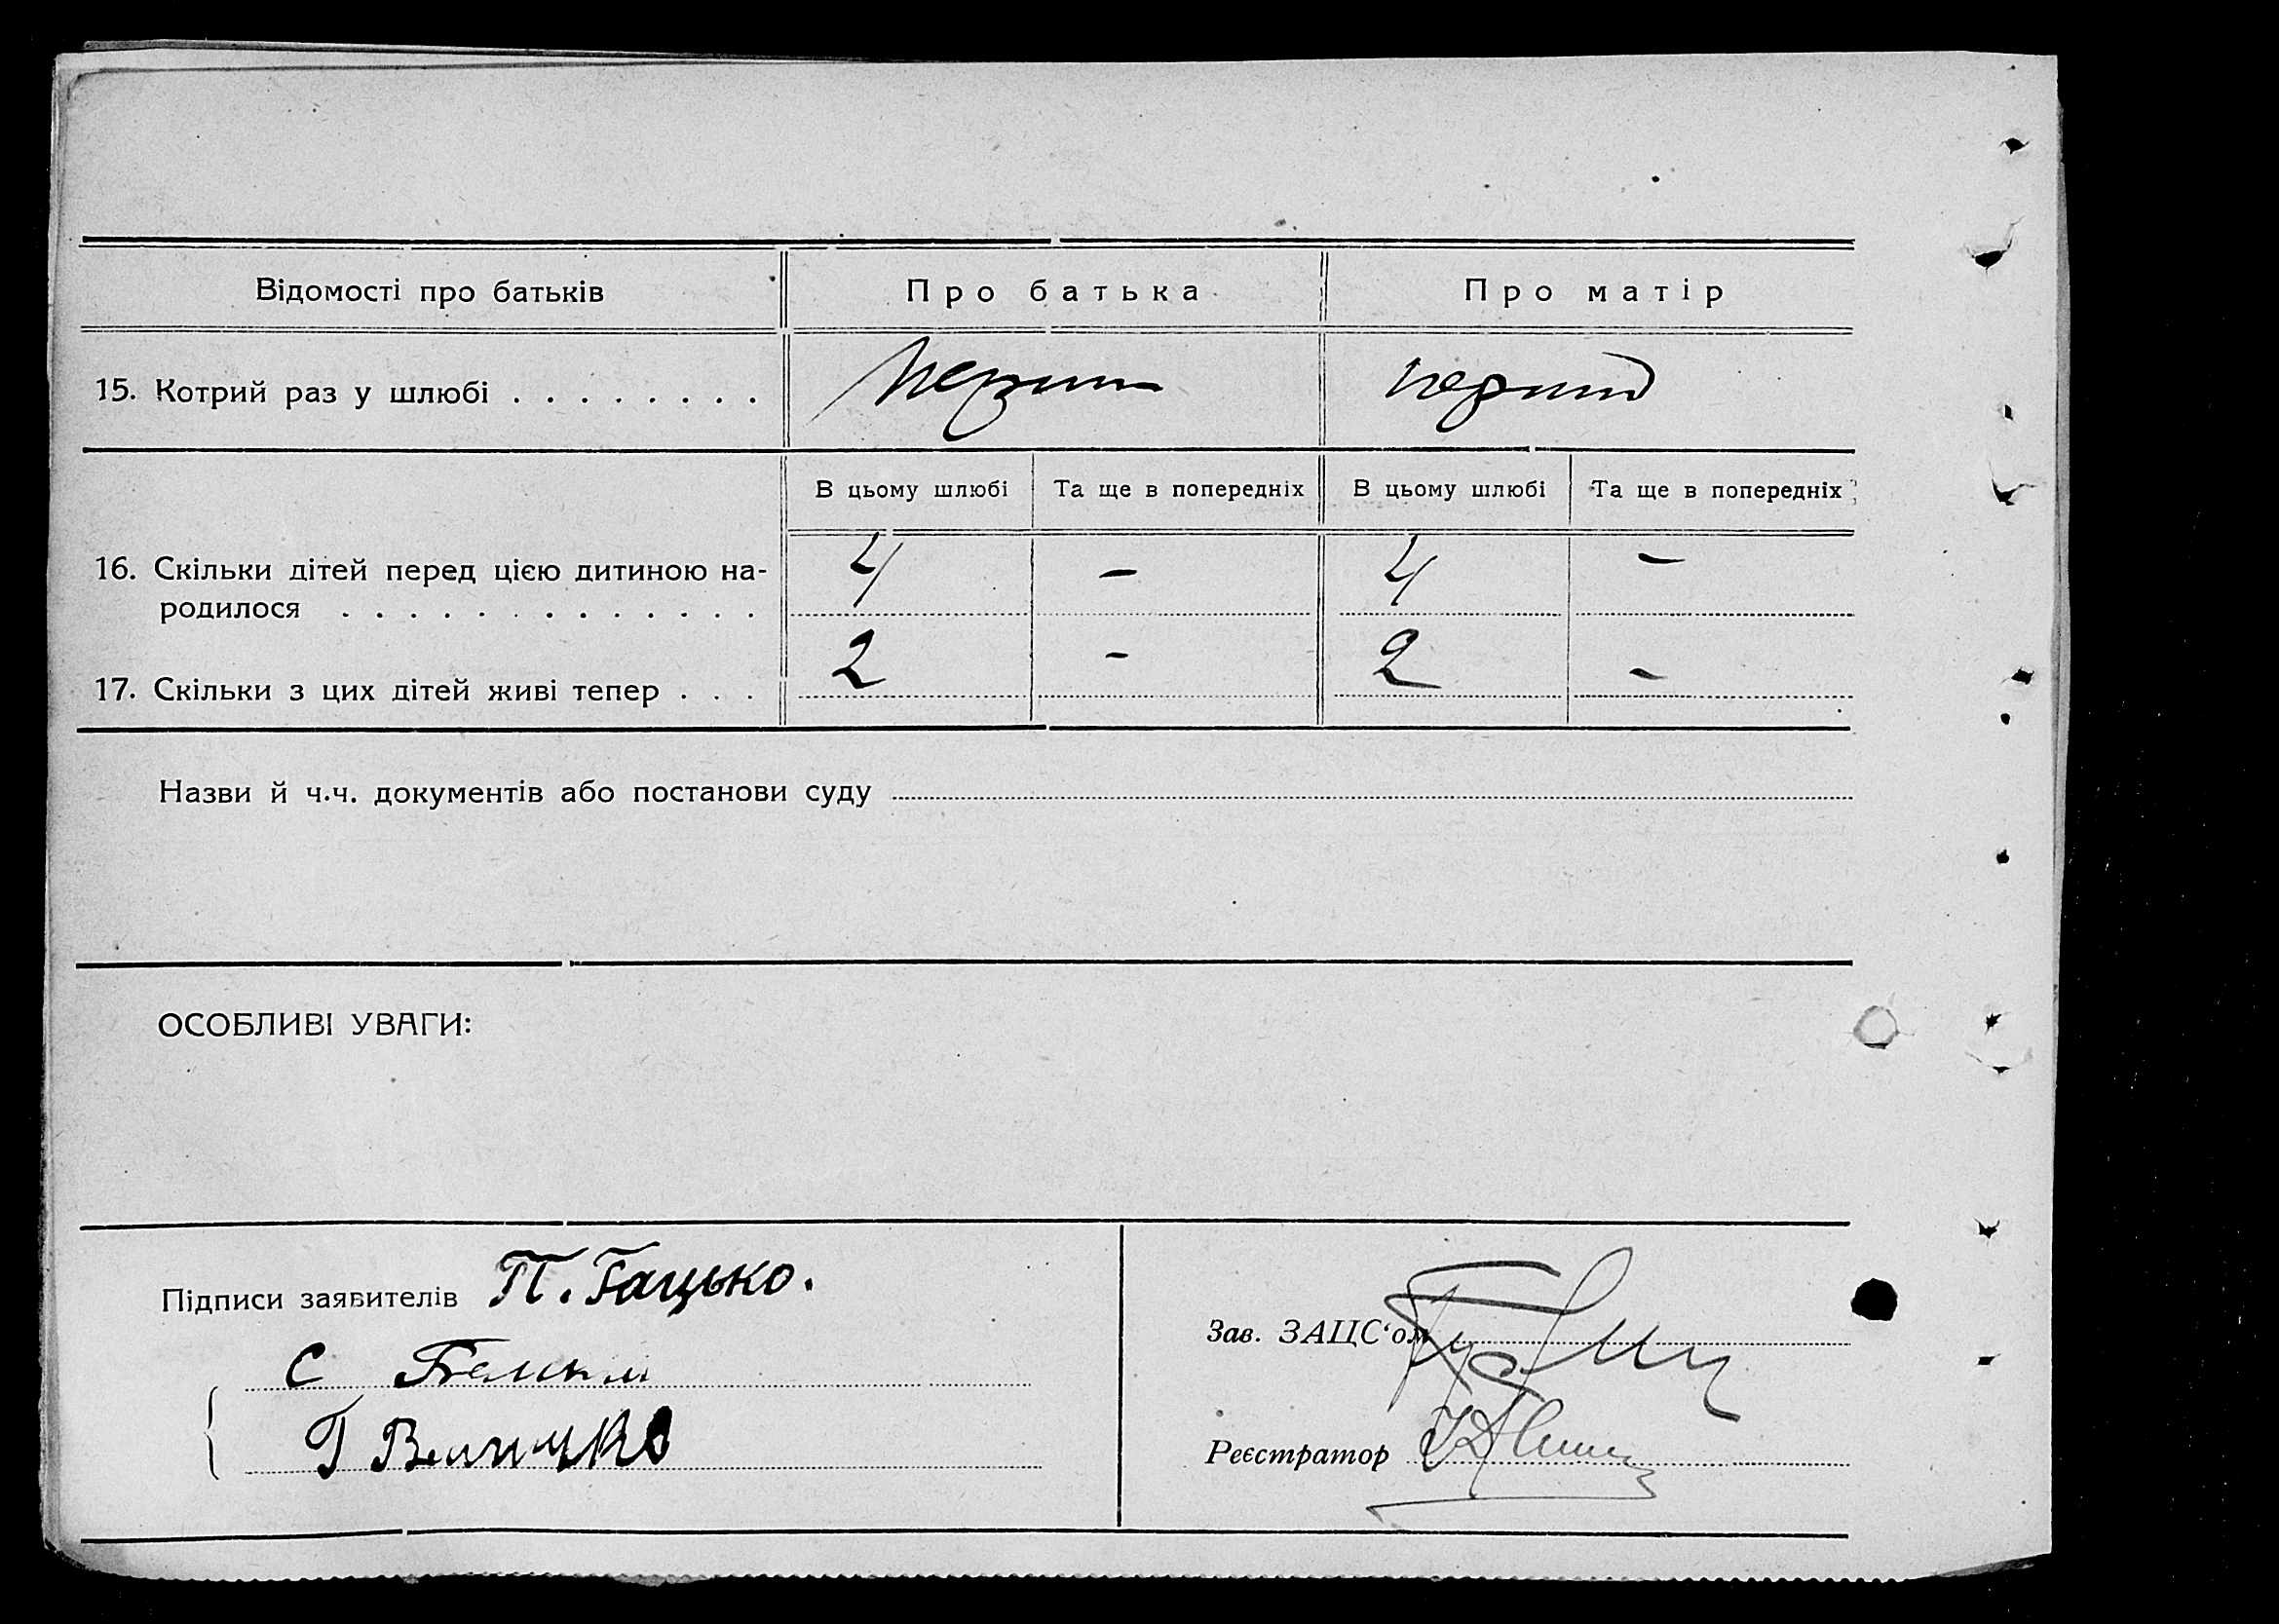 Відомості про батьків
Про батька
Про матір
15. Котрий раз у шлюбі . . . . . . . .
перший
перший
В цьому шлюбі
Та ще в попередніх
В цьому шлюбі
Та ще в попередніх
16. Скільки дітей перед цією дитиною на-
родилося . . . . . . . . . . . . .
4
–
4
–
17. Скільки з цих дітей живі тепер . . .
2
-
2
-
Назви й ч.ч. документів або постанови суду
ОСОБЛИВІ УВАГИ:
Підписи заявителів П. Гацько.
С
Г Величко
Зав. ЗАЦС‘ом
Реєстратор